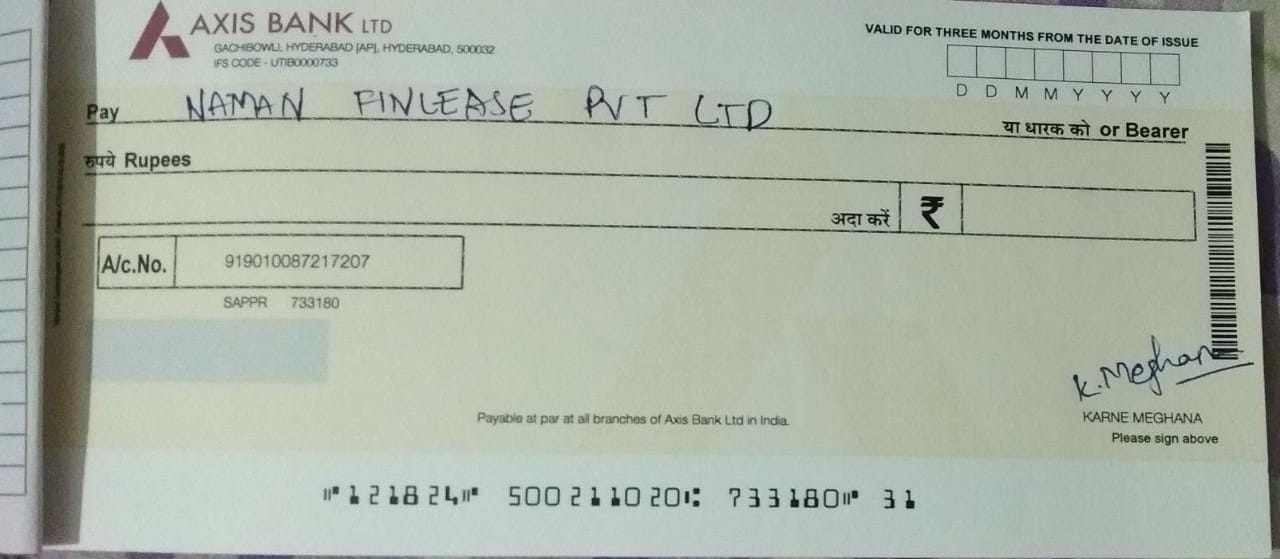 AXIS BANK LTD
GACHIBOWLI, HYDERABAD [AP], HYDERABAD, 500032
IFS CODE - UTIB0000733
VALID FOR THREE MONTHS FROM THE DATE OF ISSUE
D D M M Y Y Y Y
Pay NAMAN FINLEASE PVT LTD
या धारक को or Bearer
रुपये Rupees
अदा करें ₹
A/c.No. 919010087217207
SAPPR 733180
K. Meghana
Payable at par at all branches of Axis Bank Ltd in India.
KARNE MEGHANA
Please sign above
⑈121824⑈ 500211020⑆ 733180⑈ 31